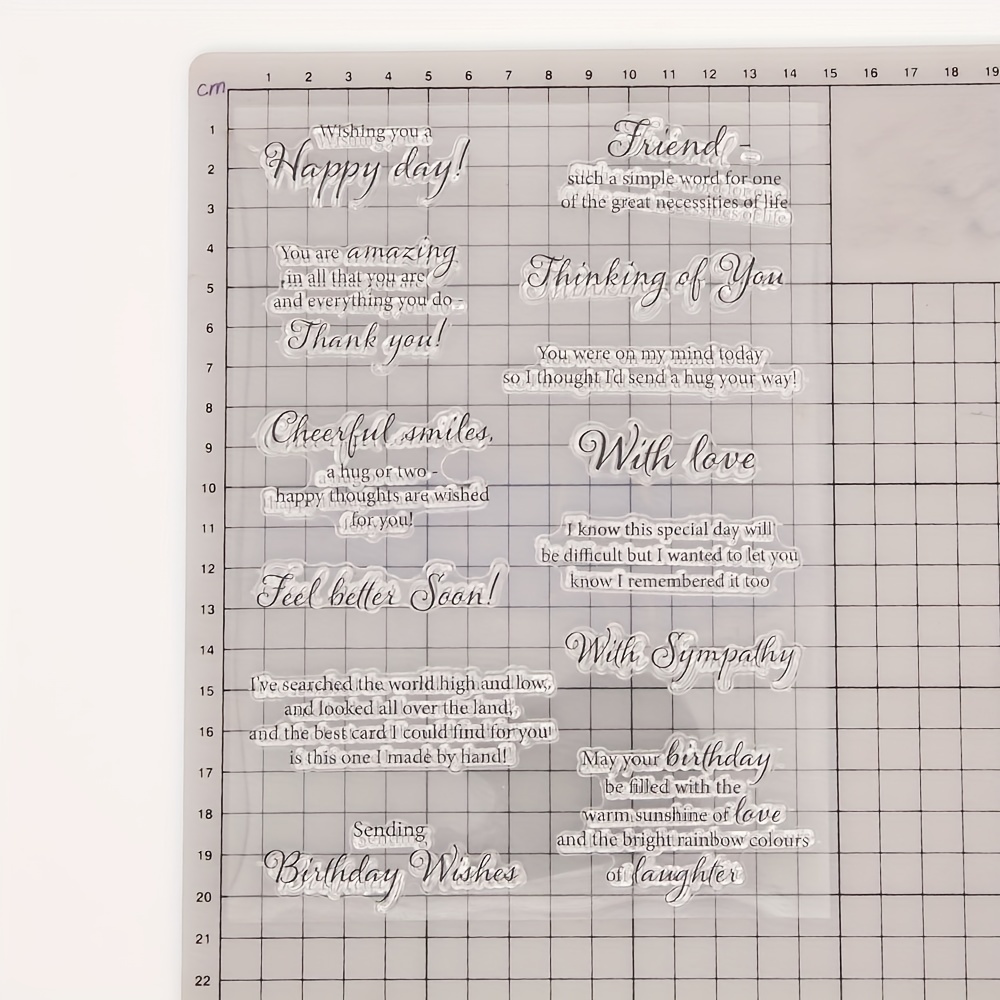 1 2 3 4 5 6 7 8 9 10 11 12 13 14 15 16 17 18 19
cm
1
2
3
4
5
6
7
8
9
10
11
12
13
14
15
16
17
18
19
20
21
22
Wishing you a
Happy day!
You are amazing
in all that you are
and everything you do -
Thank you!
Cheerful smiles,
a hug or two -
happy thoughts are wished
for you!
Feel better Soon!
I've searched the world high and low,
and looked all over the land,
and the best card I could find for you
is this one I made by hand!
Sending
Birthday Wishes
Friend -
such a simple word for one
of the great necessities of life
Thinking of You
You were on my mind today
so I thought I'd send a hug your way!
With love
I know this special day will
be difficult but I wanted to let you
know I remembered it too
With Sympathy
May your birthday
be filled with the
warm sunshine of love
and the bright rainbow colours
of laughter